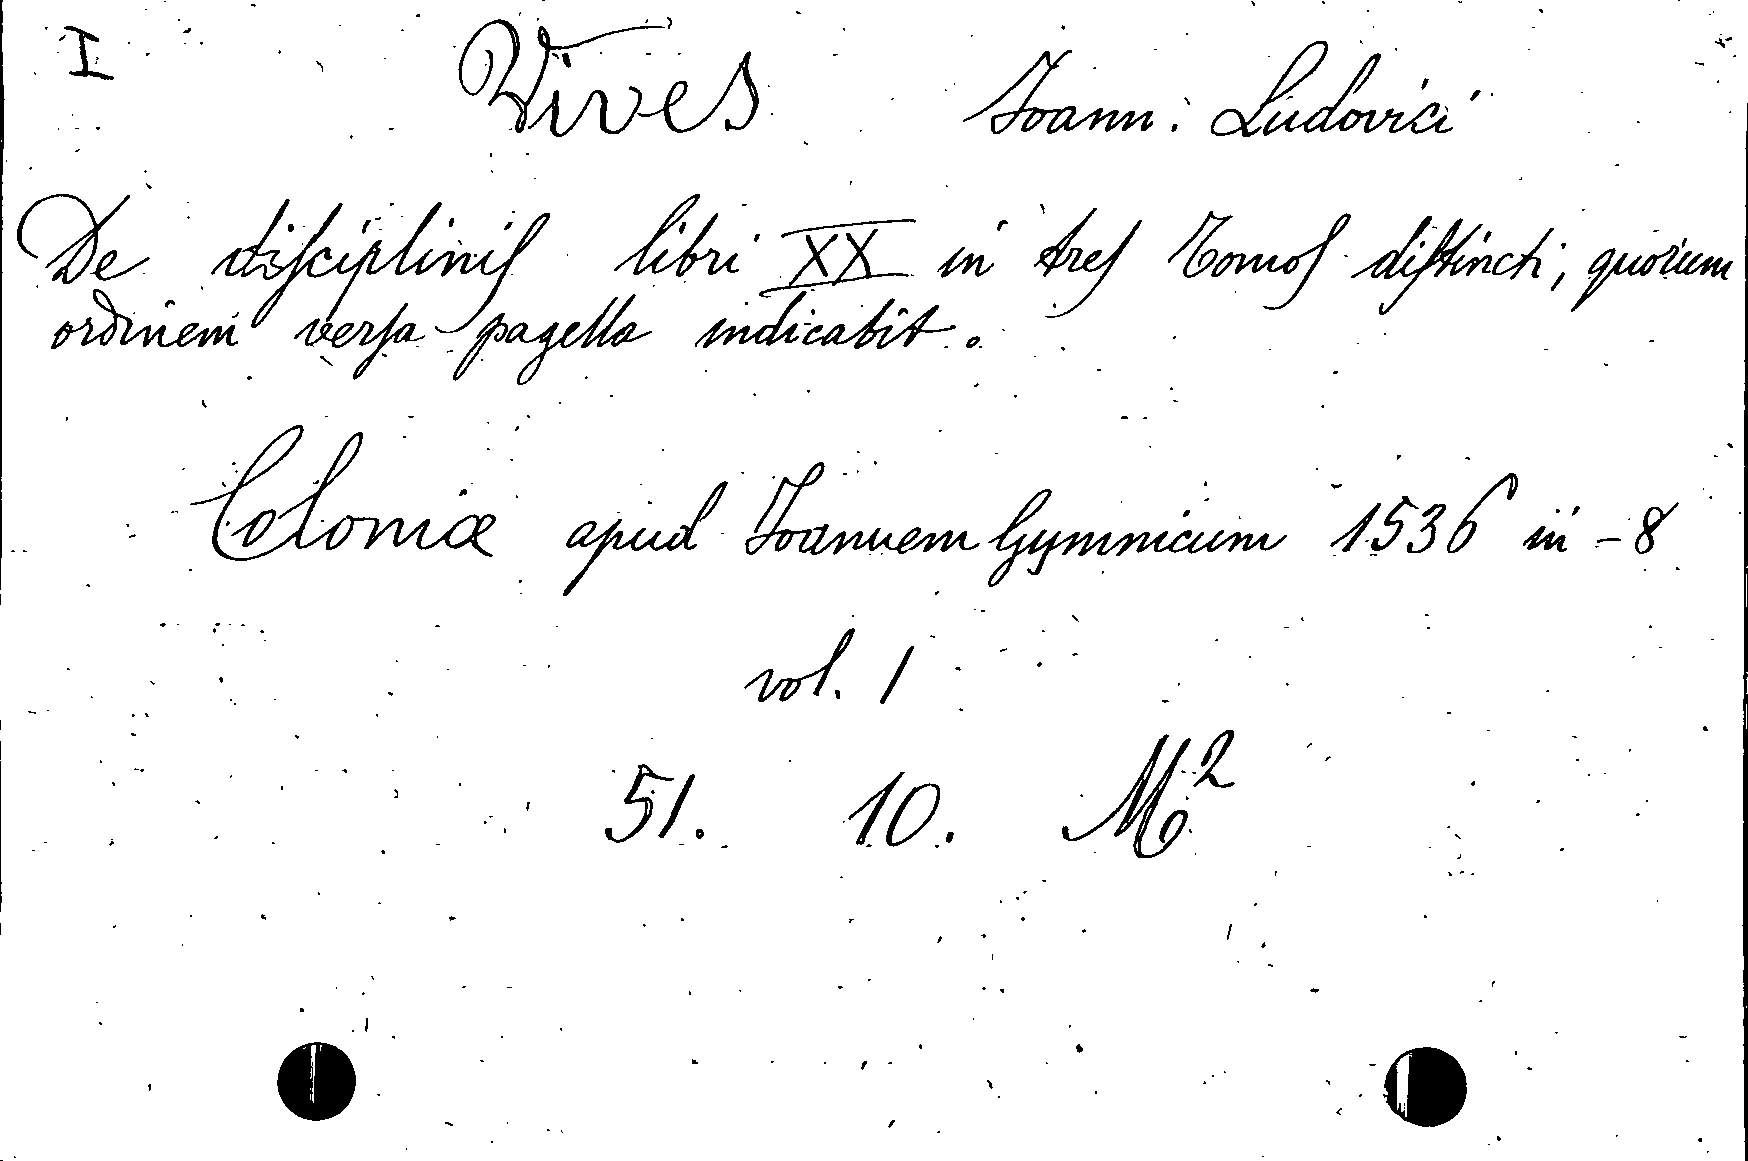 I Vives Joann: Ludovici
De diſcipliniſ libri XX in treſ Tomoſ diſtincti, quorum
ordinem verſa pagella indicabit.
Coloniæ apud Joannem Gymnicum 1536 in-8
vol. 1
51. 10. M²